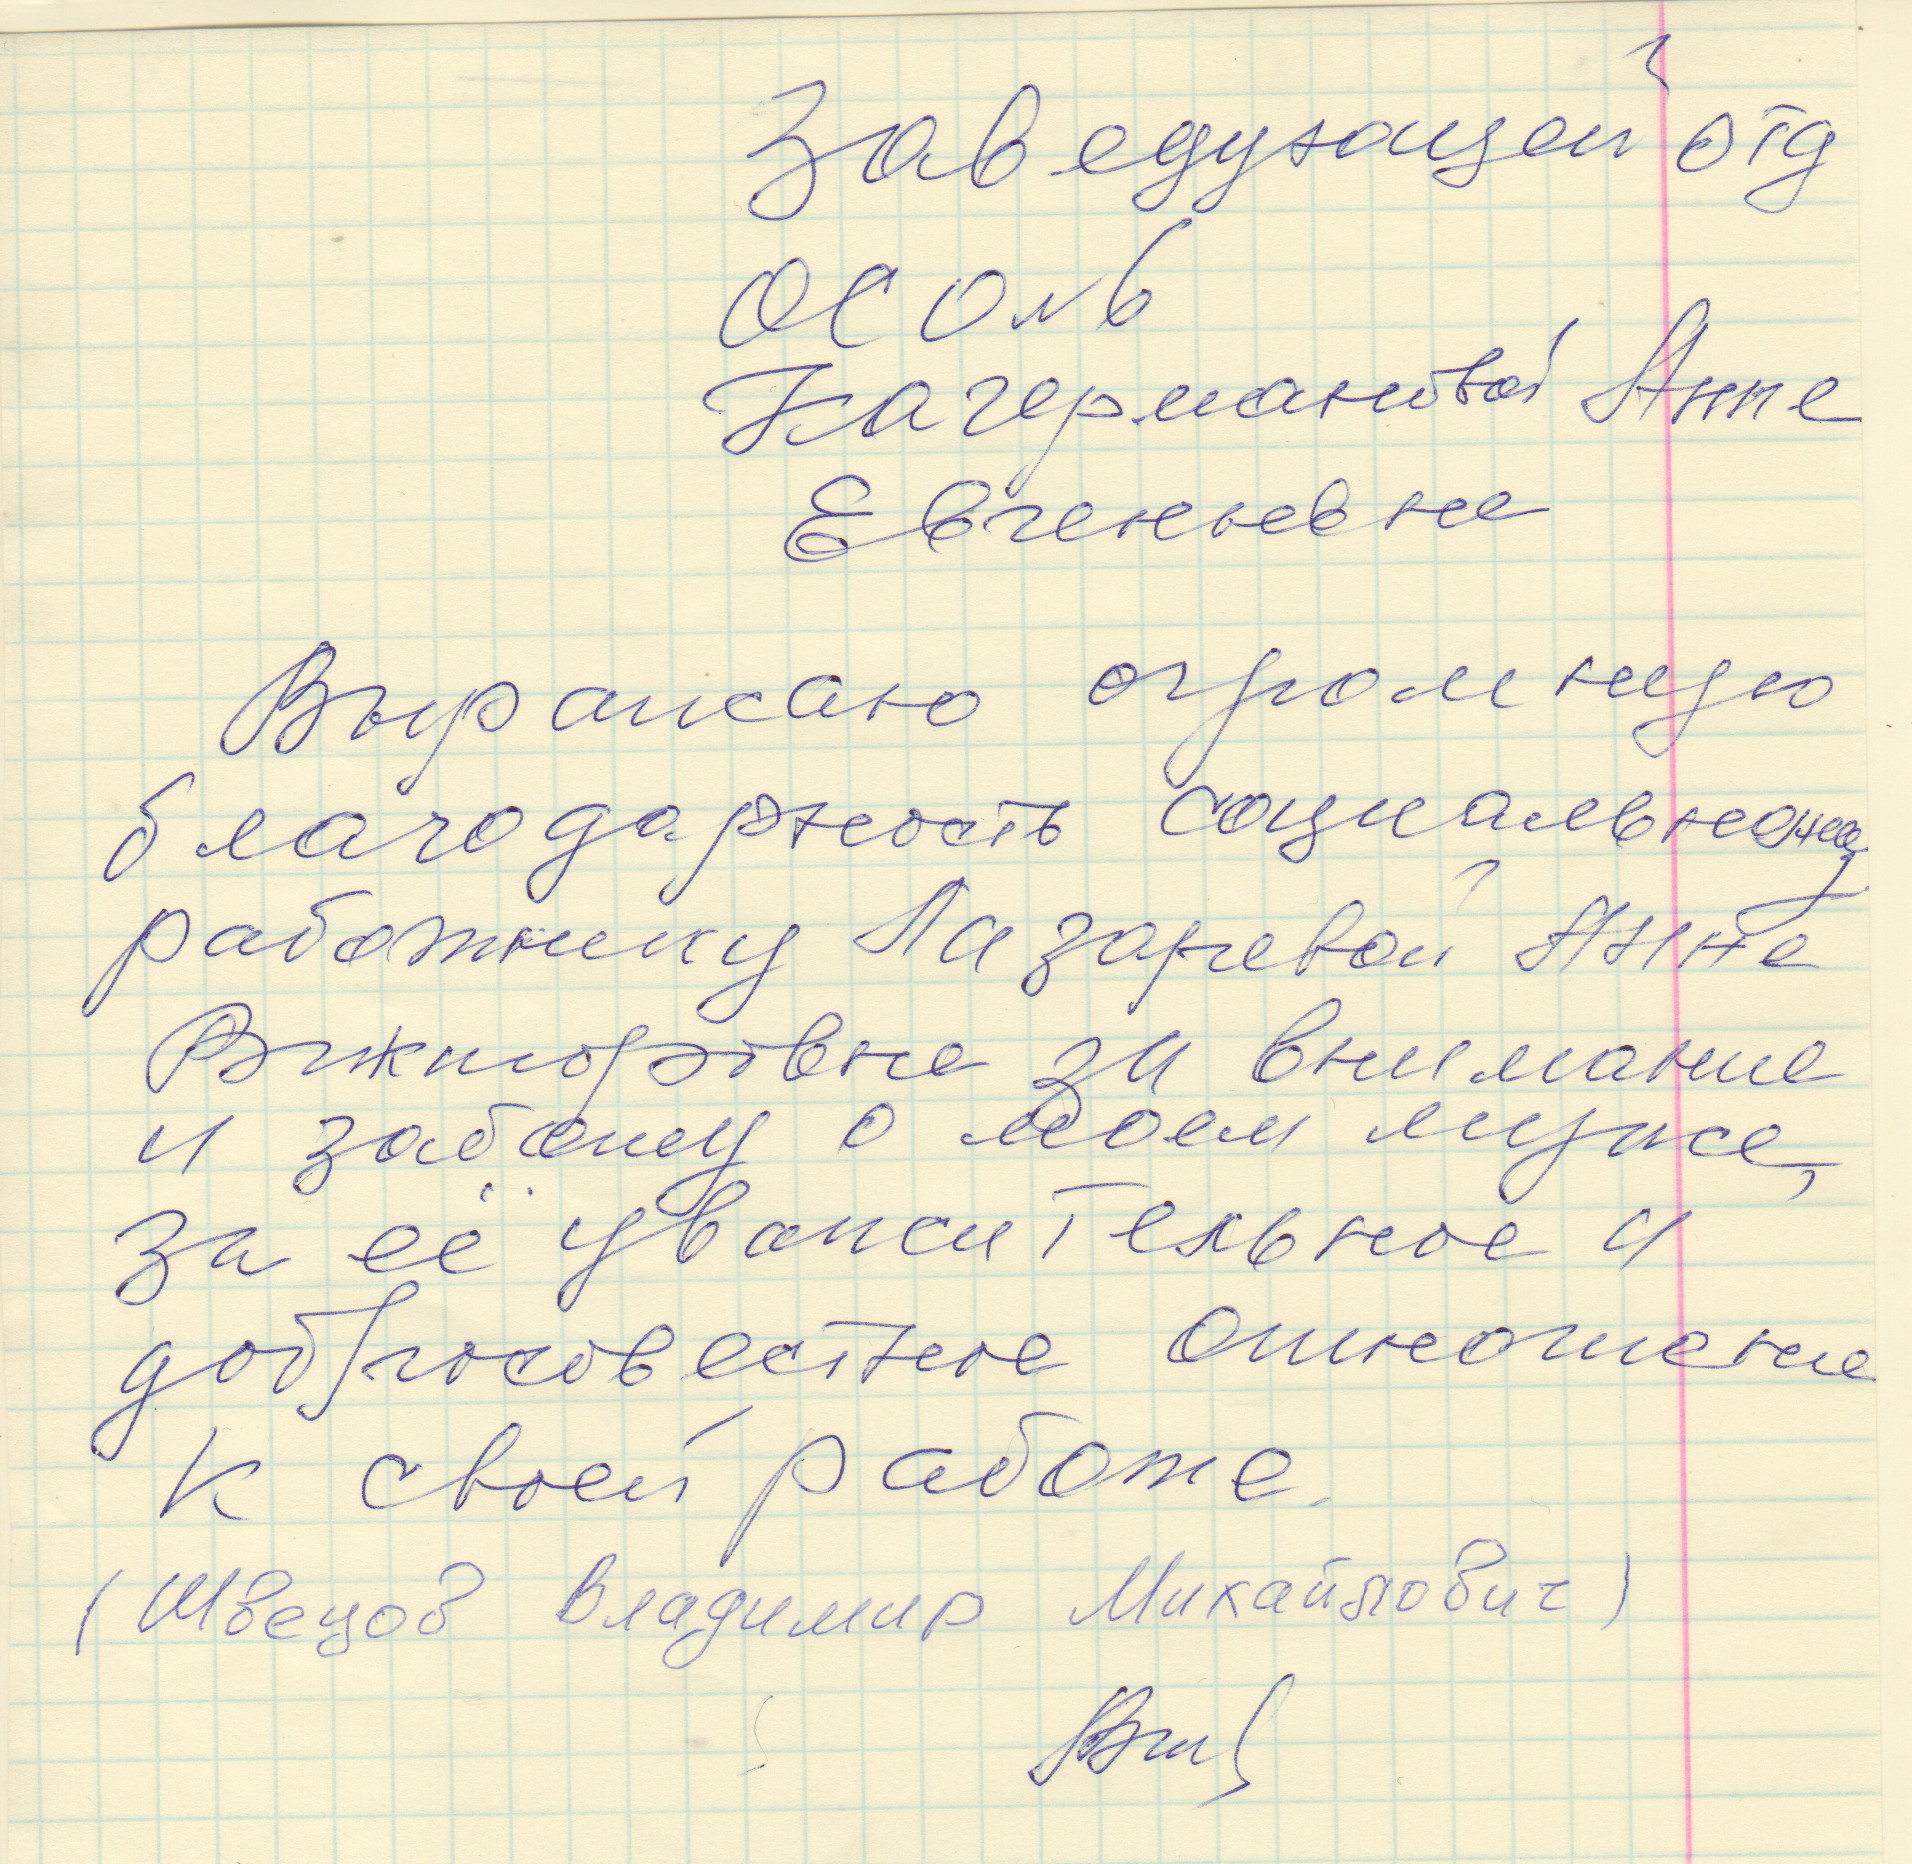 Заведующей отд
Анне
Евгеньевне
Выражаю огромную
благодарность социальному
работнику Лазаревой Анне
Викторовне за внимание
и заботу о моем муже,
за её уважительное и
добросовестное отношение
к своей работе.
(Швецов Владимир Михайлович)